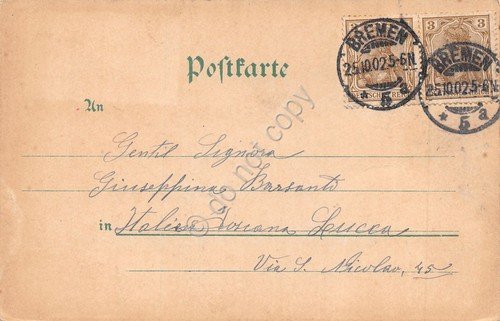 BREMEN
25.10.02.5-6N.
* 5 a
3
BREMEN
25.10.02.5-6N.
* 5 a
Postkarte
An
Gentil Signora
Giuseppina Barsanti
in Italien Toscana Lucca
Via S. Nicolao, 45
© do not copy